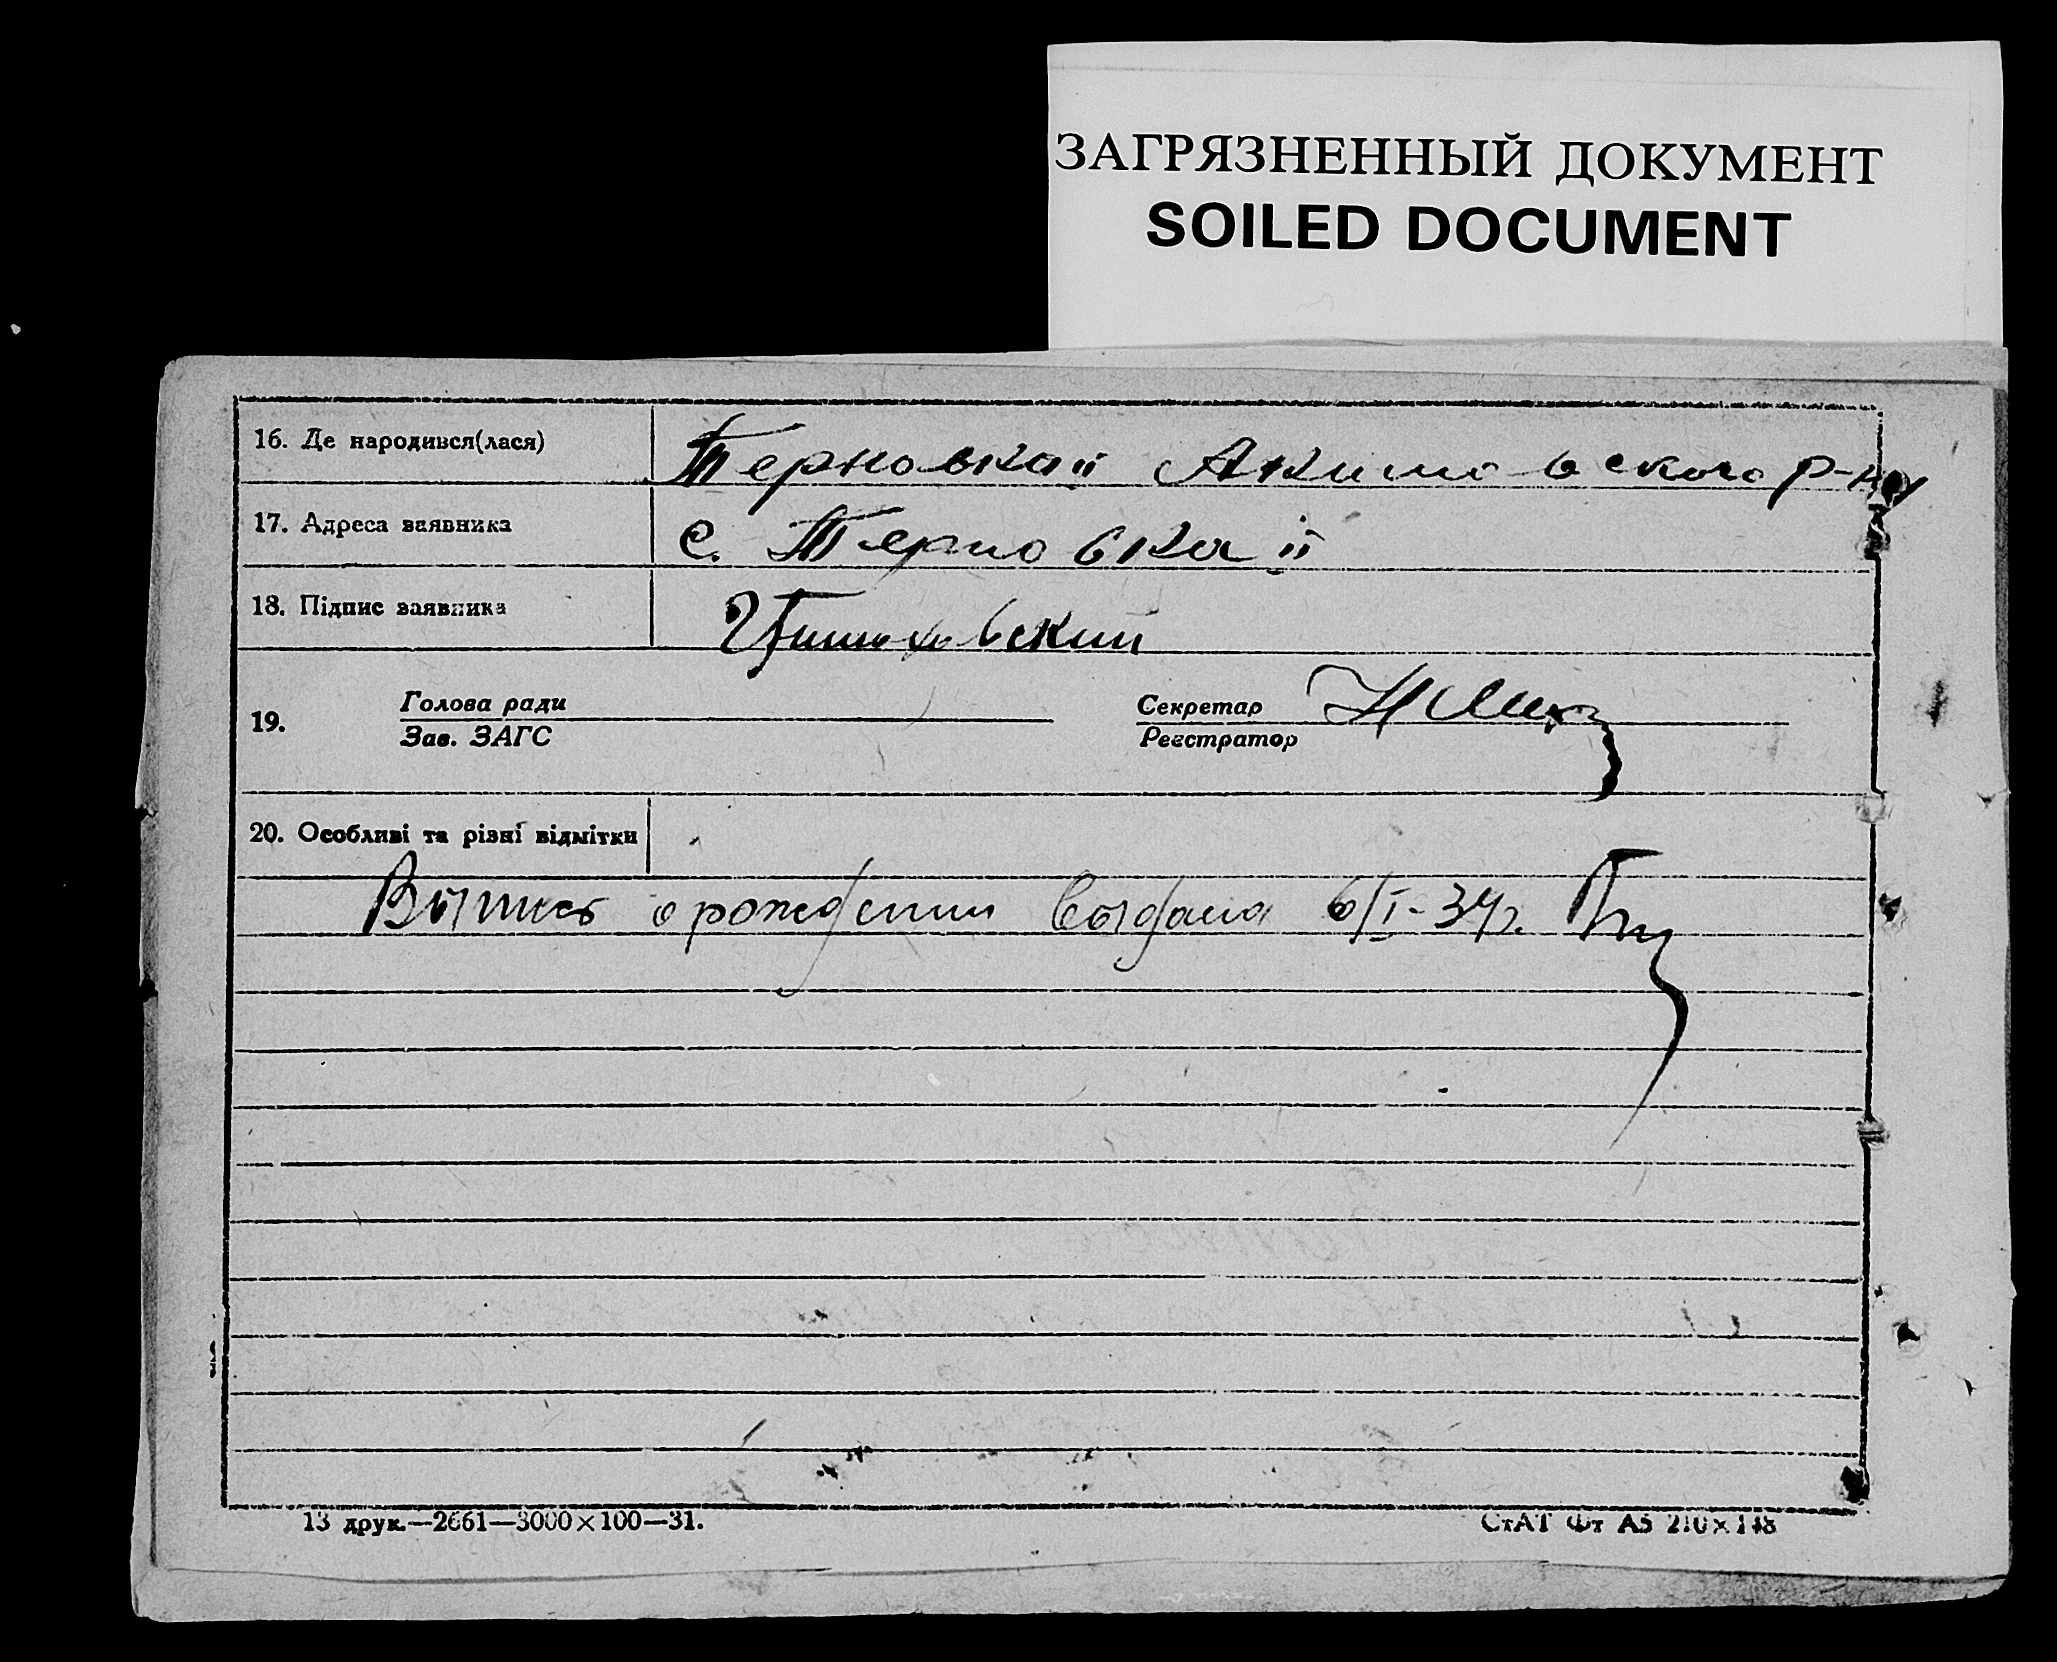 ЗАГРЯЗНЕННЫЙ ДОКУМЕНТ
SOILED DOCUMENT
16. Де народився(лася) Терновка ІІ Акимовского р-на
17. Адреса заявника с. Терновка ІІ
18. Підпис заявника
19. Голова ради Секретар
Зав. ЗАГС Реєстратор
20. Особливі та різні відмітки
Выпись о рождении выдана 6/I-34г.
13 друк.—2661—3000×100—31. СтАТ Фт А5 210×148